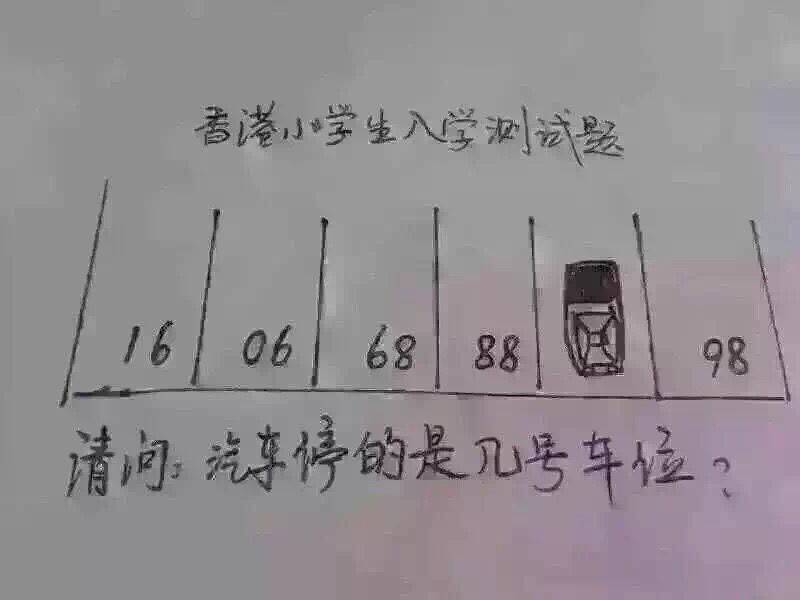 香港小学生入学测试题
16 06 68 88 98
请问：汽车停的是几号车位？